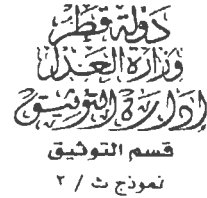 دولة قطر
وزارة العدل
إدارة التوثيق
قسم التوثيق
نموذج ث / ٢